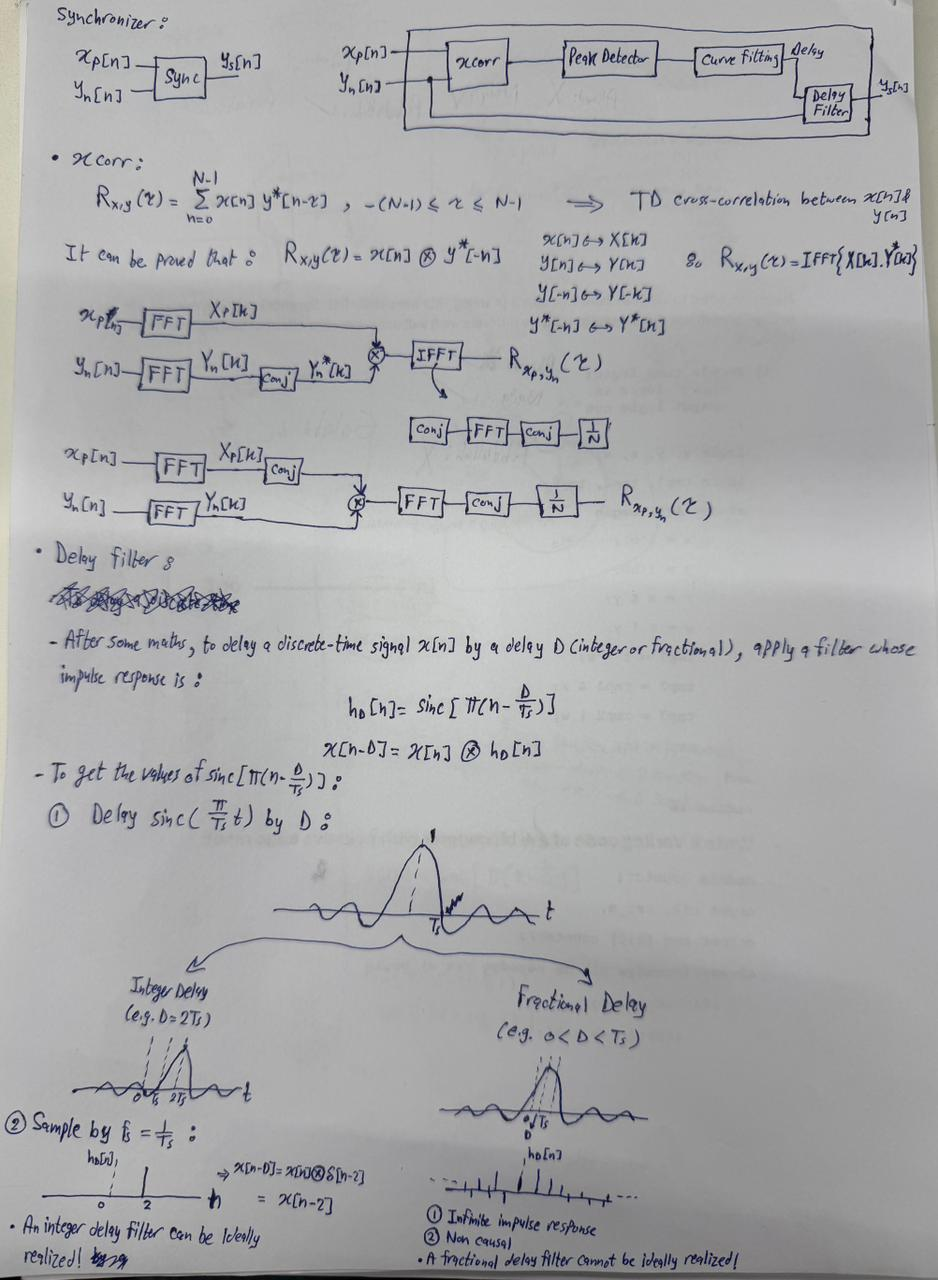 Synchronizer:
xp[n]
yn[n]
Sync
ys[n]
xp[n]
yn[n]
xcorr
Peak Detector
Curve fitting
Delay
Delay Filter
ys[n]
• xcorr:
Rx,y(τ) = Σ_{n=0}^{N-1} x[n] y*[n-τ] , -(N-1) ≤ τ ≤ N-1 ⇒ TD cross-correlation between x[n] & y[n]
It can be proved that: Rx,y(τ) = x[n] ⊗ y*[-n]
x[n] ↔ X[k]
y[n] ↔ Y[k]
y[-n] ↔ Y[-k]
y*[-n] ↔ Y*[k]
So Rx,y(τ) = IFFT{X[k].Y*[k]}
xp[n]
FFT
Xp[k]
yn[n]
FFT
Yn[k]
Conj
Yn*[k]
×
IFFT
Rxp,yn(τ)
Conj
FFT
Conj
1/N
xp[n]
FFT
Xp[k]
Conj
yn[n]
FFT
Yn[k]
×
FFT
Conj
1/N
Rxp,yn(τ)
• Delay filter:
- After some maths, to delay a discrete-time signal x[n] by a delay D (integer or fractional), apply a filter whose
impulse response is:
hD[n] = sinc[π(n - D/Ts)]
x[n-D] = x[n] ⊗ hD[n]
- To get the values of sinc[π(n - D/Ts)]:
① Delay sinc(π/Ts t) by D:
1
Ts
t
Integer Delay
(e.g. D=2Ts)
0 Ts 2Ts
t
Fractional Delay
(e.g. 0<D<Ts)
0 Ts
D
② Sample by fs = 1/Ts :
hD[n]
0 2
n
⇒ x[n-D] = x[n] ⊗ δ[n-2]
= x[n-2]
• An integer delay filter can be ideally
realized!
hD[n]
① Infinite impulse response
② Non causal
• A fractional delay filter cannot be ideally realized!